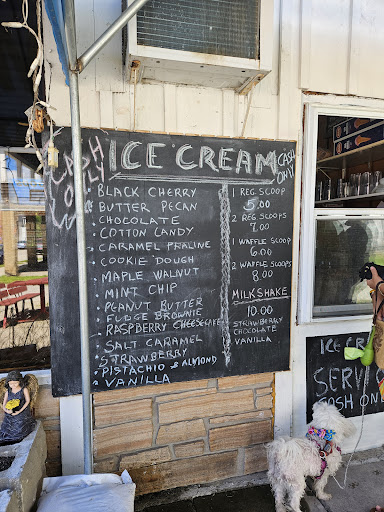 CASH ONLY
ICE CREAM
CASH ONLY
BLACK CHERRY
BUTTER PECAN
CHOCOLATE
COTTON CANDY
CARAMEL PRALINE
COOKIE DOUGH
MAPLE WALNUT
MINT CHIP
PEANUT BUTTER
FUDGE BROWNIE
RASPBERRY CHEESECAKE
SALT CARAMEL
STRAWBERRY
PISTACHIO & ALMOND
VANILLA
1 REG SCOOP
5.00
2 REG SCOOPS
7.00
1 WAFFLE SCOOP
6.00
2 WAFFLE SCOOPS
8.00
MILKSHAKE
10.00
STRAWBERRY
CHOCOLATE
VANILLA
ICE CR
SERVI
CASH ONL